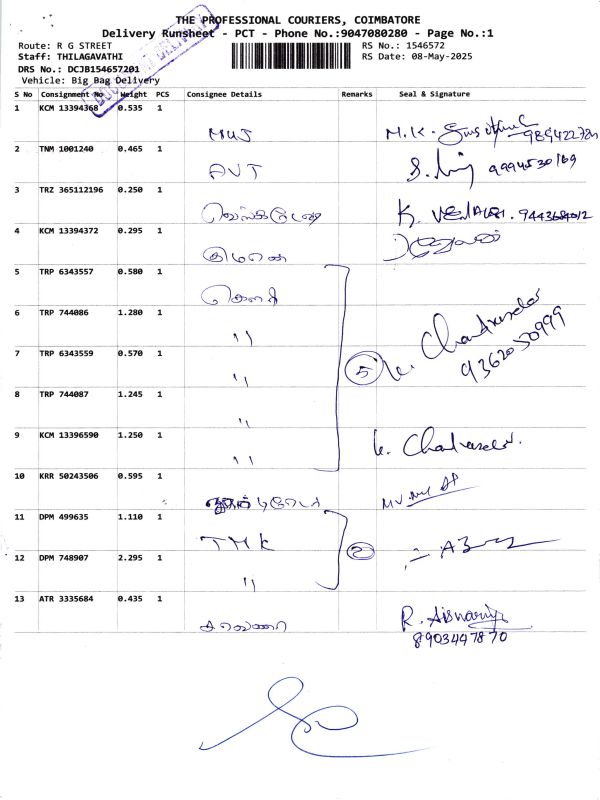 THE PROFESSIONAL COURIERS, COIMBATORE
Delivery Runsheet - PCT - Phone No.:9047080280 - Page No.:1
Route: R G STREET
RS No.: 1546572
Staff: THILAGAVATHI
RS Date: 08-May-2025
DRS No.: DCJB154657201
Vehicle: Big Bag Delivery
S No Consignment No Weight PCS Consignee Details Remarks Seal & Signature
1 KCM 13394368 0.535 1
MUJ M.K.
2 TNM 1001240 0.465 1
AVT S. 9994530169
3 TRZ 365112196 0.250 1
K. 9443684012
4 KCM 13394372 0.295 1
5 TRP 6343557 0.580 1
கௌரி
6 TRP 744086 1.280 1
" K. Chandrasekar
9362050999
7 TRP 6343559 0.570 1
" 5
8 TRP 744087 1.245 1
"
9 KCM 13396590 1.250 1
" K. Chandrasekar.
10 KRR 50243506 0.595 1
11 DPM 499635 1.110 1
TMK 2
12 DPM 748907 2.295 1
"
13 ATR 3335684 0.435 1
R.
8903447870